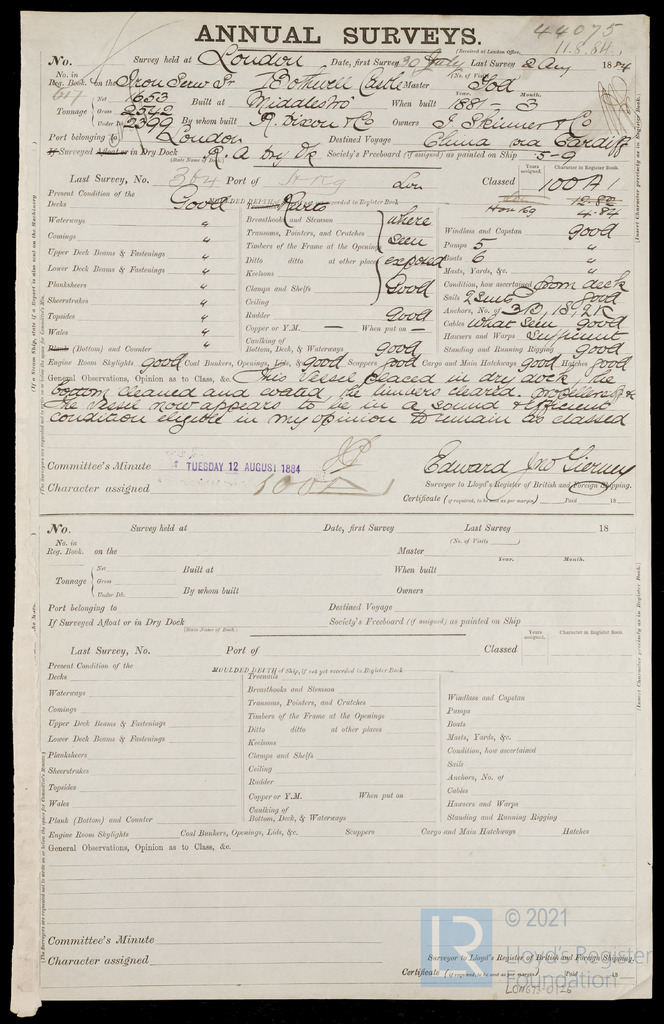 ANNUAL SURVEYS.
44075
(Received at London Office, 11.8.84.)
No. Survey held at London Date, first Survey 30 July Last Survey 2 Aug 1884
No. in Reg. Book. 617 on the Iron Screw Sr Bothwell Castle Master Tod
(No. of Visits)
Tonnage Net 1653 Built at Middlesbro When built 1881 - 3
Year. Month.
Gross 2542
Under Dk. 2392 By whom built R. Dixon & Co Owners T. Skinner & Co
Port belonging to London Destined Voyage China via Cardiff
If Surveyed Afloat or in Dry Dock R. A Dry Dk Society's Freeboard (if assigned) as painted on Ship 5-9
(State Name of Dock.)
Last Survey, No. 364 Port of Lon Classed 100A1
Years assigned. Character in Register Book.
12.82
Hon Kg 4.84
Present Condition of the MOULDED DEPTH of Ship, if not yet recorded in Register Book
Decks Good
Waterways "
Comings "
Upper Deck Beams & Fastenings "
Lower Deck Beams & Fastenings "
Planksheers "
Sheerstrakes "
Topsides "
Wales "
Plank (Bottom) and Counter "
Treenails Rivets
Breasthooks and Stemson where
Transoms, Pointers, and Crutches
Timbers of the Frame at the Openings seen
Ditto ditto at other places exposed
Keelsons
Clamps and Shelfs Good
Ceiling
Rudder Good
Copper or Y.M. — When put on —
Caulking of Bottom, Deck, & Waterways good
Windlass and Capstan good
Pumps 5 "
Boats 6 "
Masts, Yards, &c. "
Condition, how ascertained from deck
Sails 2 Suits good
Anchors, No. of 3B, 1S, 2K
Cables what seen good
Hawsers and Warps Sufficient
Standing and Running Rigging Good
Engine Room Skylights good Coal Bunkers, Openings, Lids, &c. good Scuppers good Cargo and Main Hatchways Good Hatches good
General Observations, Opinion as to Class, &c. This vessel placed in dry dock, the
bottom cleaned and coated,
The vessel now appears to be in a sound & efficient
condition eligible in my opinion to remain as classed
Committee's Minute TUESDAY 12 AUGUST 1884
Edward Jno Tierney
Character assigned 100A1
Surveyor to Lloyd's Register of British and Foreign Shipping.
Certificate (if required, to be sent as per margin) Paid 18
No. Survey held at Date, first Survey Last Survey 18
(No. of Visits)
No. in Reg. Book. on the Master
Year. Month.
Tonnage Net Built at When built
Gross
Under Dk. By whom built Owners
Port belonging to Destined Voyage
If Surveyed Afloat or in Dry Dock Society's Freeboard (if assigned) as painted on Ship
(State Name of Dock.)
Years assigned. Character in Register Book.
Last Survey, No. Port of Classed
Present Condition of the MOULDED DEPTH of Ship, if not yet recorded in Register Book
Decks
Waterways
Comings
Upper Deck Beams & Fastenings
Lower Deck Beams & Fastenings
Planksheers
Sheerstrakes
Topsides
Wales
Plank (Bottom) and Counter
Treenails
Breasthooks and Stemson
Transoms, Pointers, and Crutches
Timbers of the Frame at the Openings
Ditto ditto at other places
Keelsons
Clamps and Shelfs
Ceiling
Rudder
Copper or Y.M. When put on
Caulking of Bottom, Deck, & Waterways
Windlass and Capstan
Pumps
Boats
Masts, Yards, &c.
Condition, how ascertained
Sails
Anchors, No. of
Cables
Hawsers and Warps
Standing and Running Rigging
Engine Room Skylights Coal Bunkers, Openings, Lids, &c. Scuppers Cargo and Main Hatchways Hatches
General Observations, Opinion as to Class, &c.
Committee's Minute
Character assigned
Surveyor to Lloyd's Register of British and Foreign Shipping.
Certificate (if required, to be sent as per margin) Paid 18
(Insert Character precisely as in Register Book.)
(Insert Character precisely as in Register Book.)
LR
© 2021
Lloyd's Register
Foundation
LON673-0126